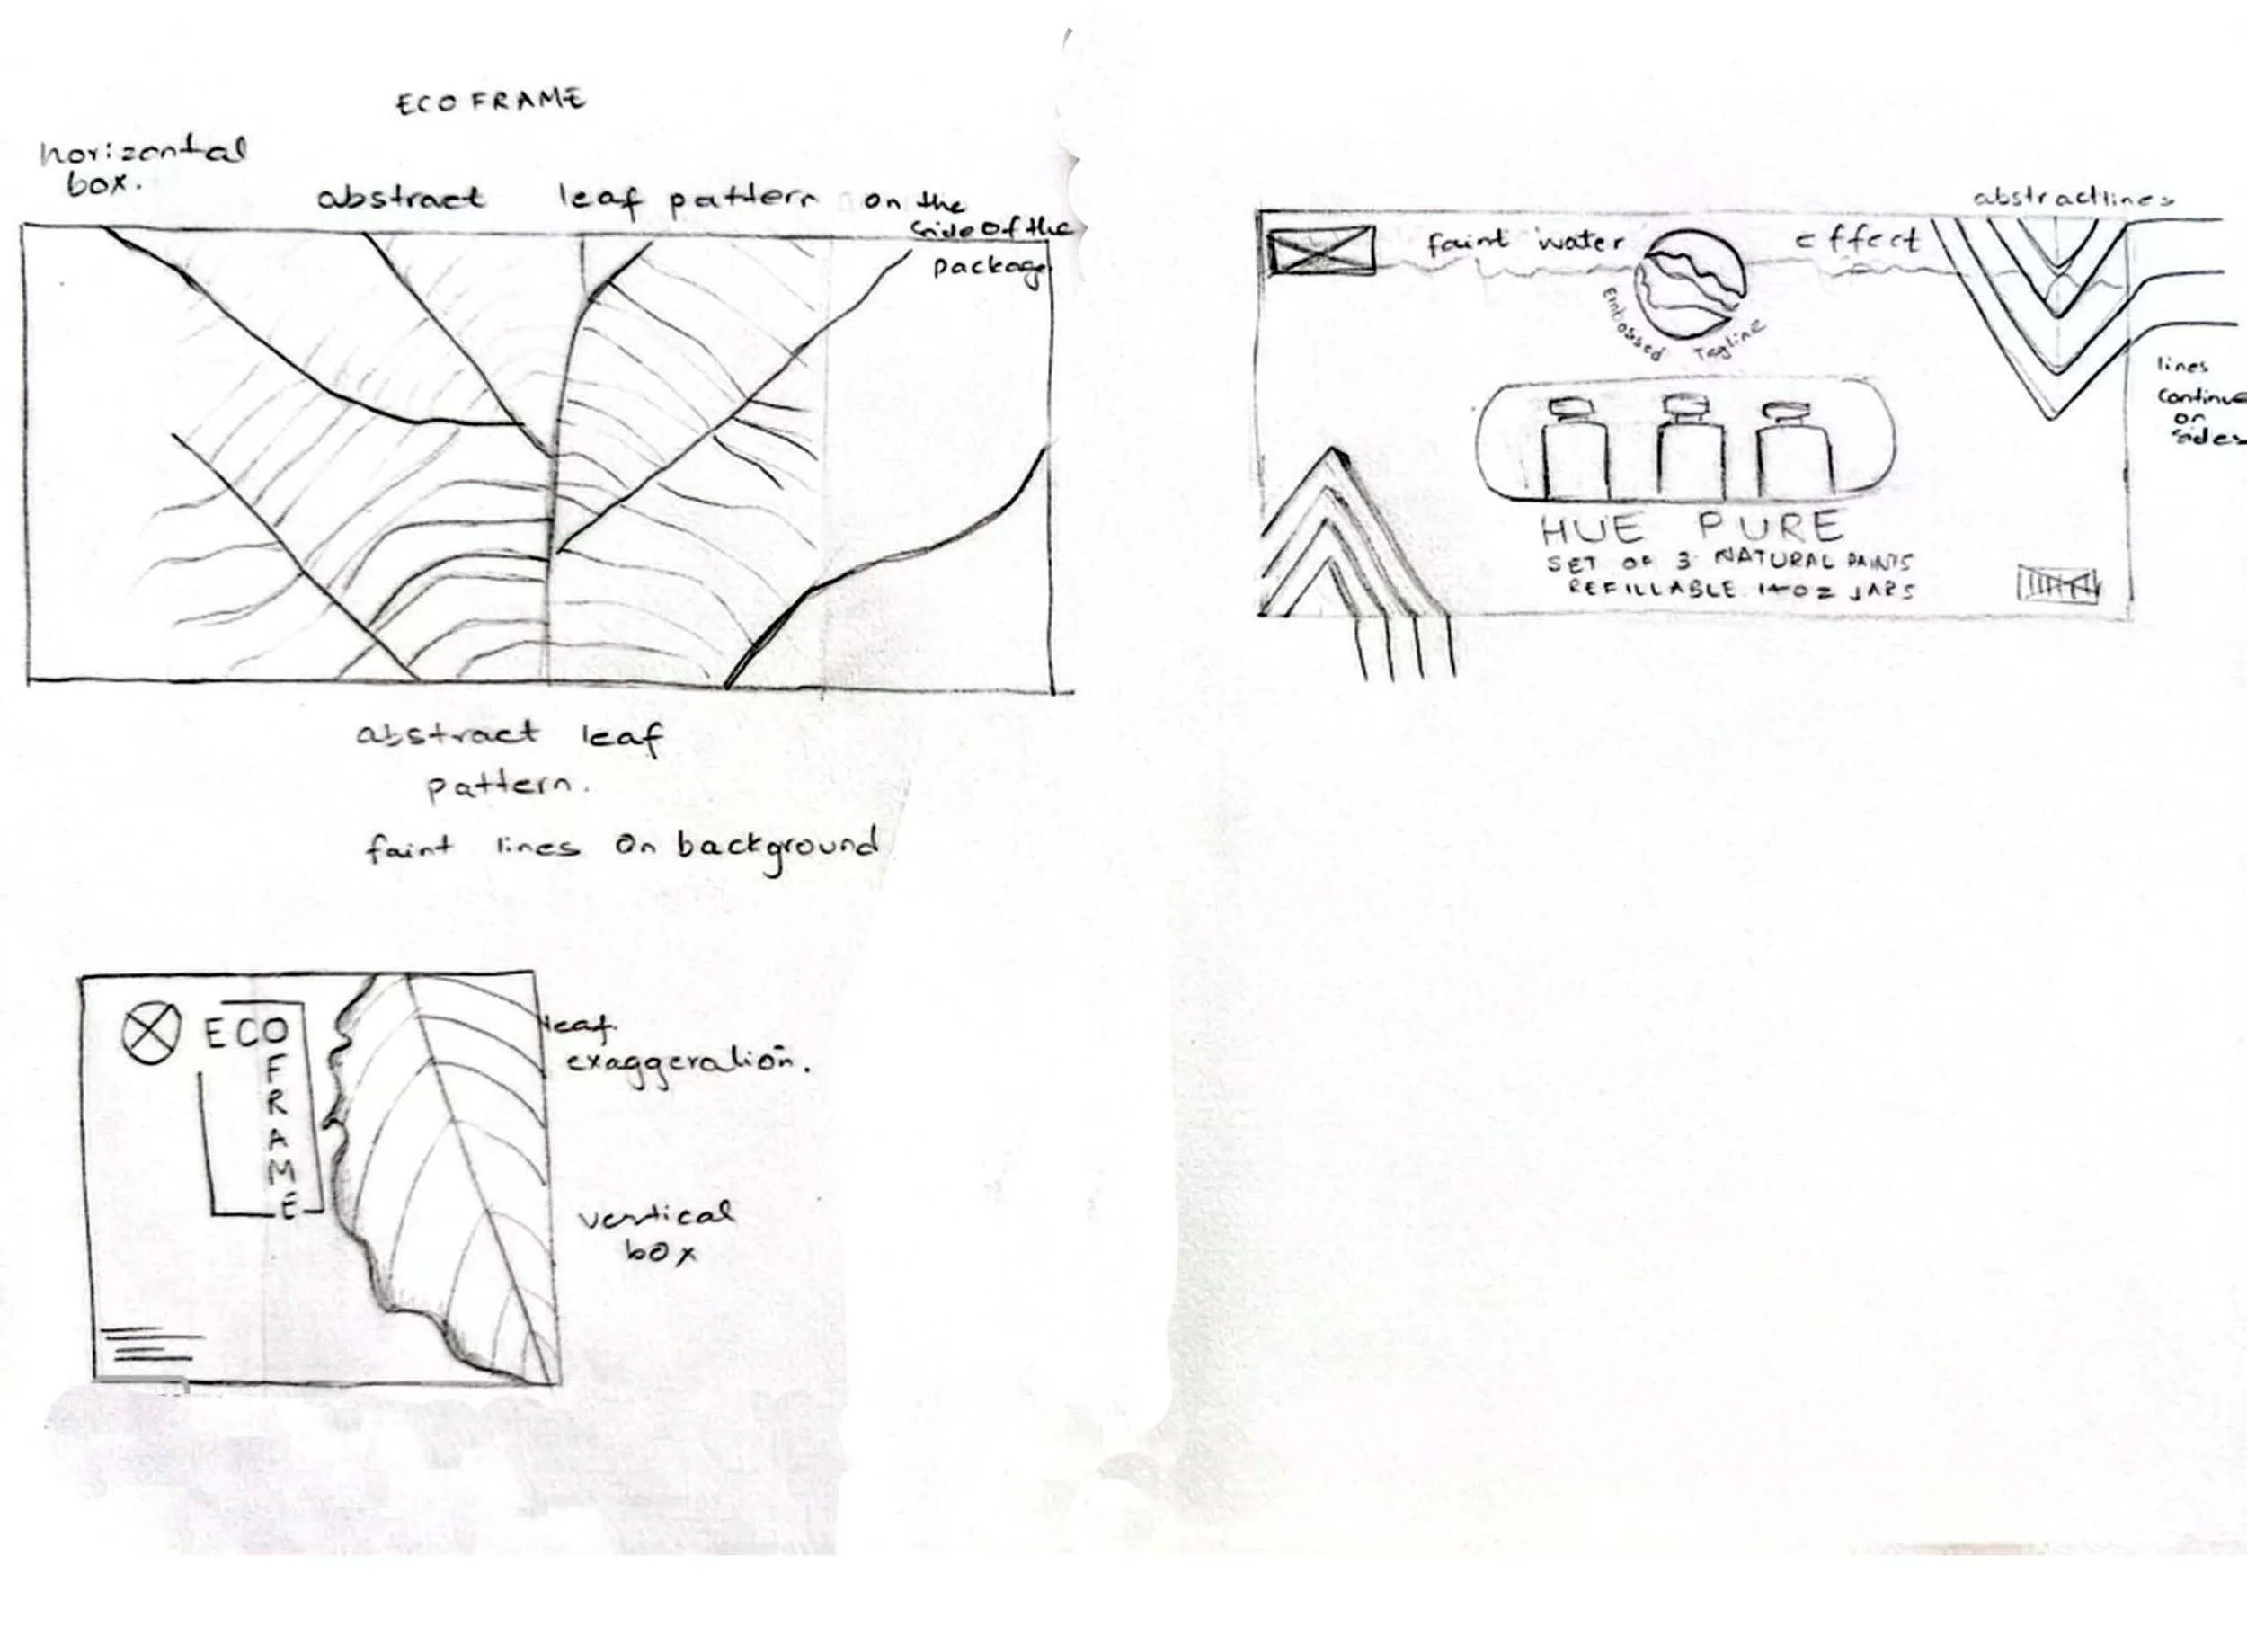 ECO FRAME
horizontal
box.
abstract leaf pattern on the
side of the
package
abstract leaf
pattern.
faint lines on background
ECO
FRAME
leaf
exaggeration.
vertical
box
abstract lines
faint water effect
Embossed Tagline
lines
continue
on
sides
HUE PURE
SET OF 3 NATURAL PAINTS
REFILLABLE 14OZ JARS